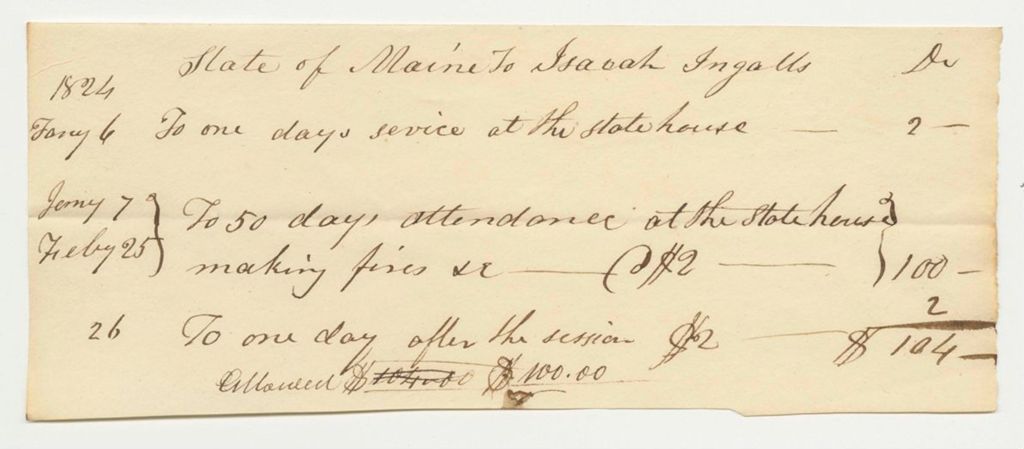 State of Maine To Isaah Ingalls Dr
1824
Jany 6 To one days sevice at the state house — 2 —
Jany 7 } To 50 days attendance at the state house }
Feby 25 } making fires &c — @ $2 — } 100 —
26 To one day after the session $2 — 2
$ 104 —
Allowed $ 104.00 $ 100.00